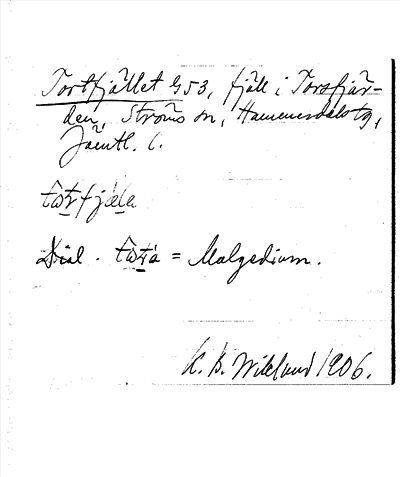 Tortfjället G53, fjäll i Torsfjär-
den, Ströms sn, Hammerdals tg,
Jämtl. l.
tω̂rtfjäla
Dial. tω̂rtà = Mulgedium.
K. B. Wiklund 1906.